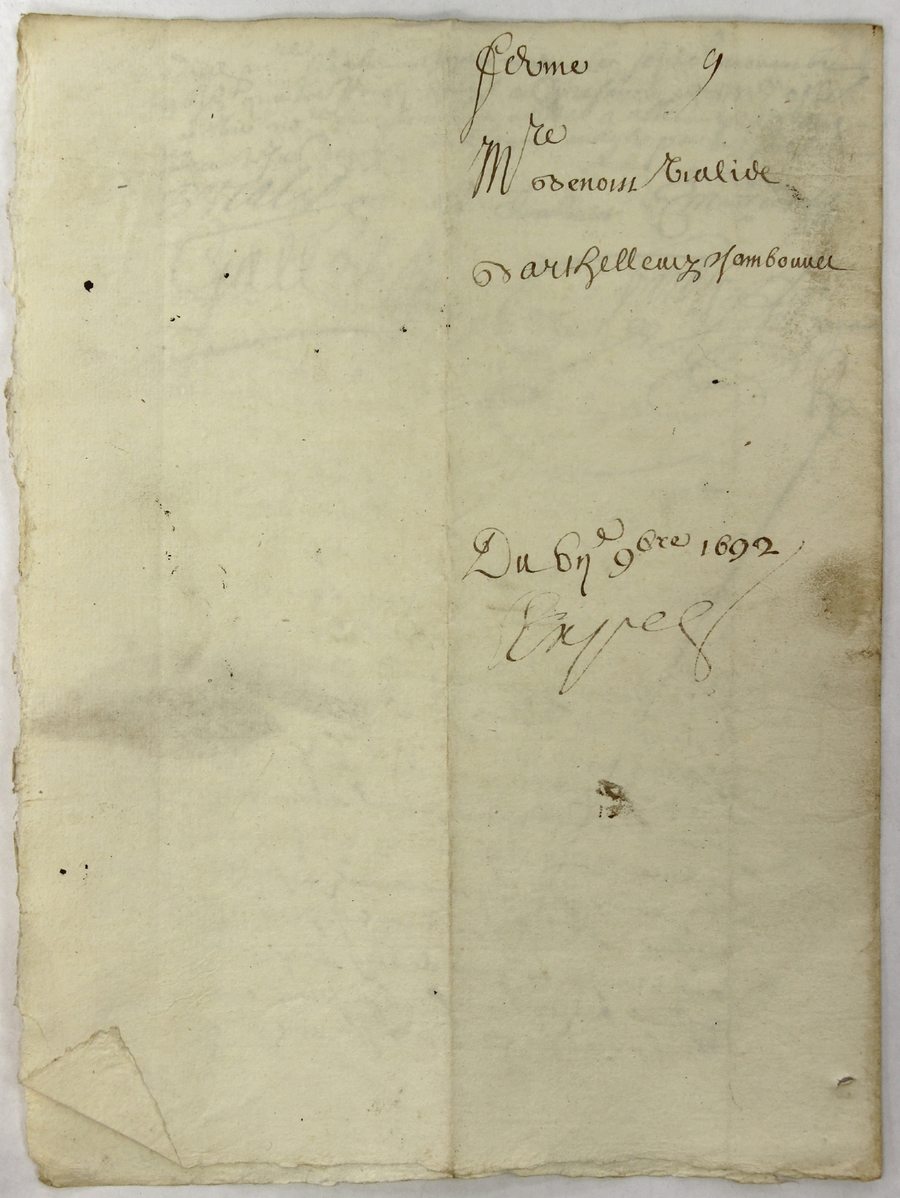 ferme 9
Mre Benoist Vialide
Barthellemy Jambonnet
Du vije 9bre 1692